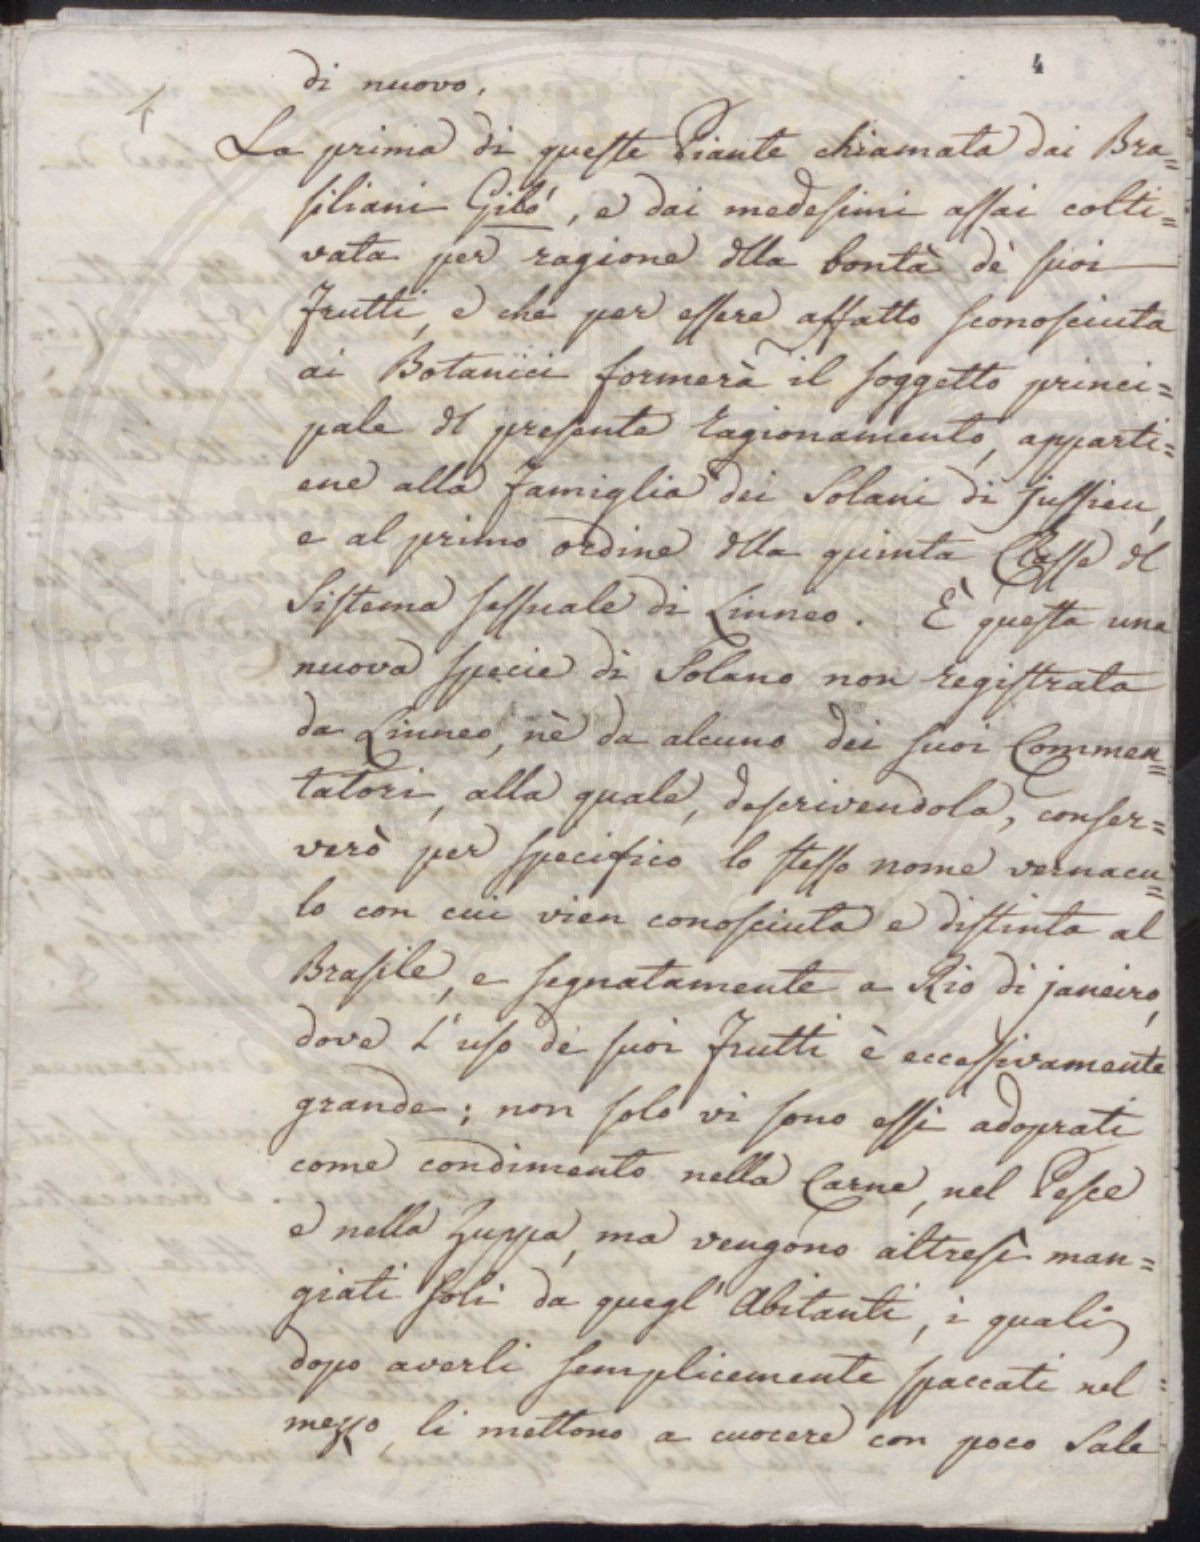 4
4
di nuovo.
La prima di queste Piante chiamata dai Bra=
siliani Giló, e dai medesimi assai colti=
vata per ragione dlla bontà dè suoi
Frutti, e che per essere affatto sconosciuta
ai Botanici formerà il soggetto princi=
pale dl presente ragionamento, apparti=
ene alla famiglia dei Solani di Jussieu,
e al primo ordine dlla quinta Classe dl
Sistema sessuale di Linneo. È questa una
nuova specie di Solano non registrata
da Linneo, nè da alcuno dei suoi Commen=
tatori, alla quale, descrivendola, conser=
verò per specifico lo stesso nome vernacu=
lo con cui vien conosciuta e distinta al
Brasile, e segnatamente a Rio di janeiro,
dove l'uso dè suoi Frutti è eccessivamente
grande; non solo vi sono essi adoprati
come condimento nella Carne, nel Pesce
e nella Zuppa, ma vengono altresì man=
giati soli da quegl'Abitanti, i quali
dopo averli semplicemente spaccati nel
mezzo, li mettono a cuocere con poco Sale